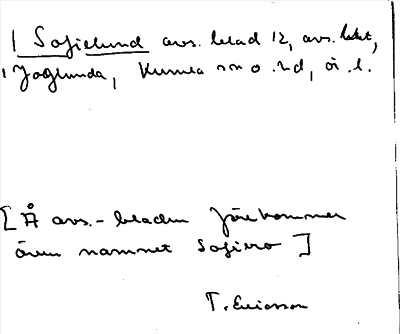 Sofielund avs. blad 12, avs. lokt,
Joglunda, Kumla snn o. hd, ör. l.
[Å avs.-bladen förekommer
även namnet Sofiero]
T. Ericsson